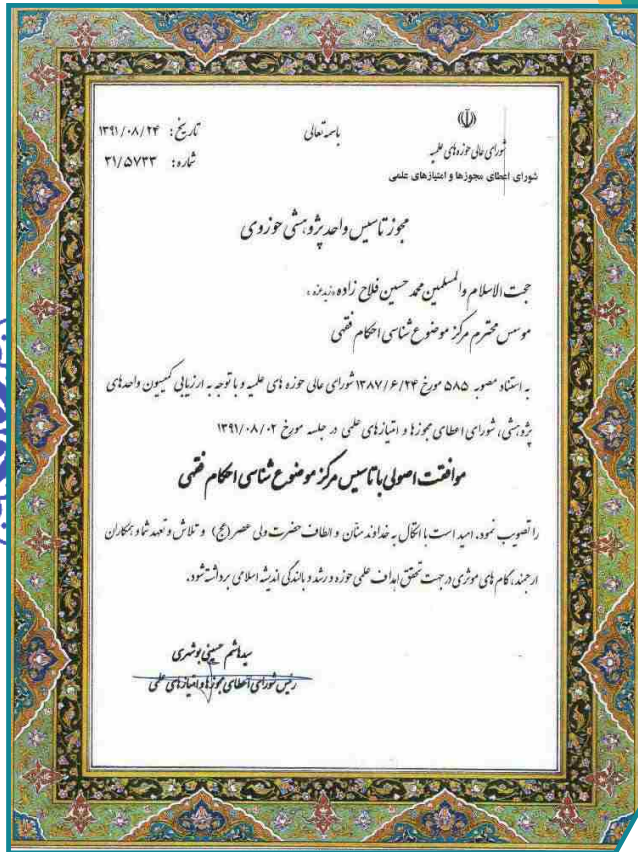 باسمه تعالی
شورای عالی حوزه های علمیه
شورای اعطای مجوزها و امتیازهای علمی
تاریخ: ۱۳۹۱/۰۸/۲۴
شماره: ۳۱/۵۷۳۳
مجوز تاسیس واحد پژوهشی حوزوی
حجت الاسلام والمسلمین محمد حسین فلاح زاده «زید عزه»
موسس محترم مرکز موضوع شناسی احکام فقهی
به استناد مصوبه ۵۸۵ مورخ ۱۳۸۷/۶/۲۴ شورای عالی حوزه های علمیه و با توجه به ارزیابی کمیسیون واحدهای
پژوهشی، شورای اعطای مجوزها و امتیازهای علمی در جلسه مورخ ۱۳۹۱/۰۸/۰۲
موافقت اصولی با تاسیس مرکز موضوع شناسی احکام فقهی
را تصویب نمود. امید است با اتکال به خداوند منّان و الطاف حضرت ولی عصر (عج) و تلاش و تعهد شما و همکاران
ارجمند، گام های موثری در جهت تحقق اهداف علمی حوزه و رشد و بالندگی اندیشه اسلامی برداشته شود.
سید هاشم حسینی بوشهری
رئیس شورای اعطای مجوزها و امتیازهای علمی